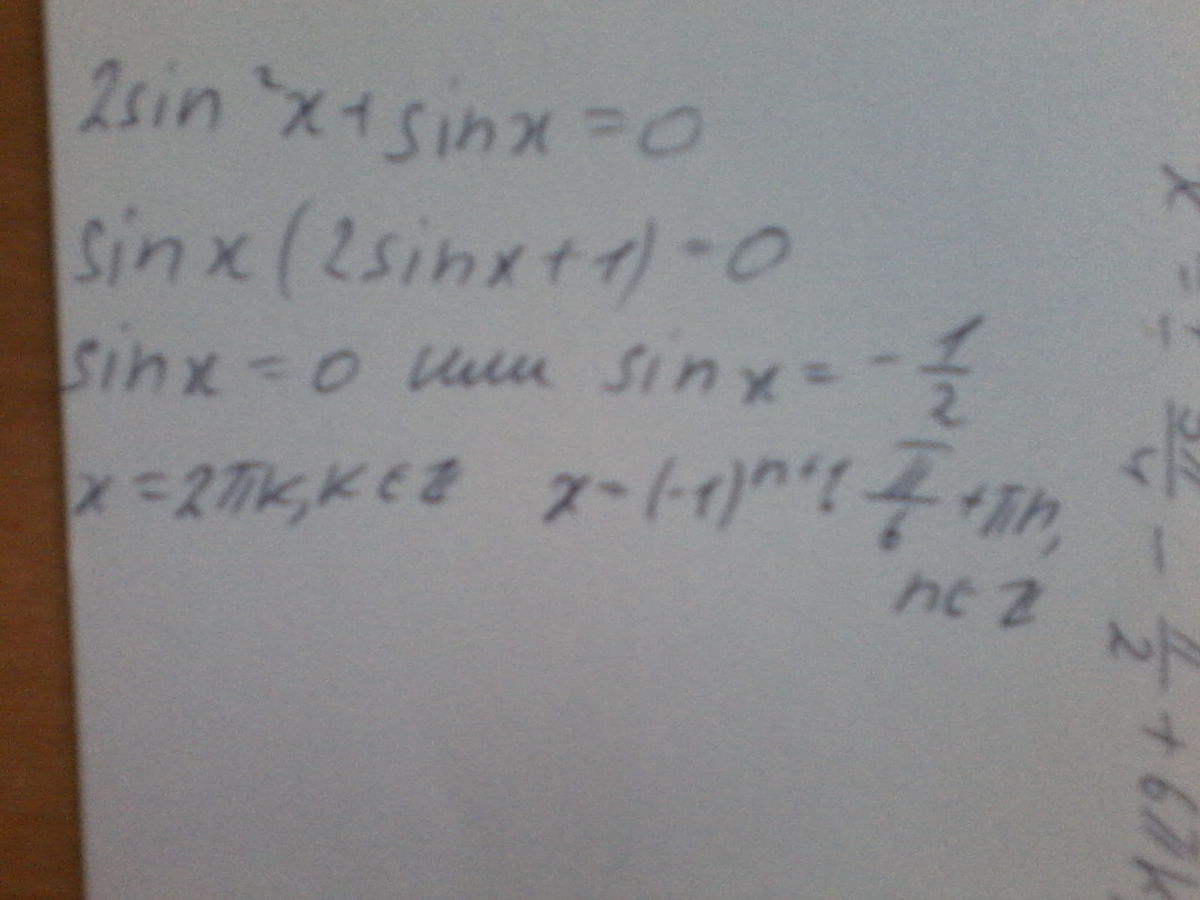 2sin²x+sinx=0
sinx(2sinx+1)=0
sinx=0 или sinx=-1/2
x=2πk,k∈Z x=(-1)ⁿ⁺¹ π/6+πn,
n∈Z
- π/2 + 6πk